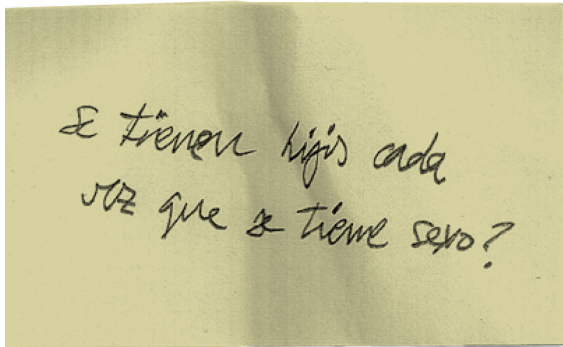 Se tienen hijos cada
vez que se tiene sexo?